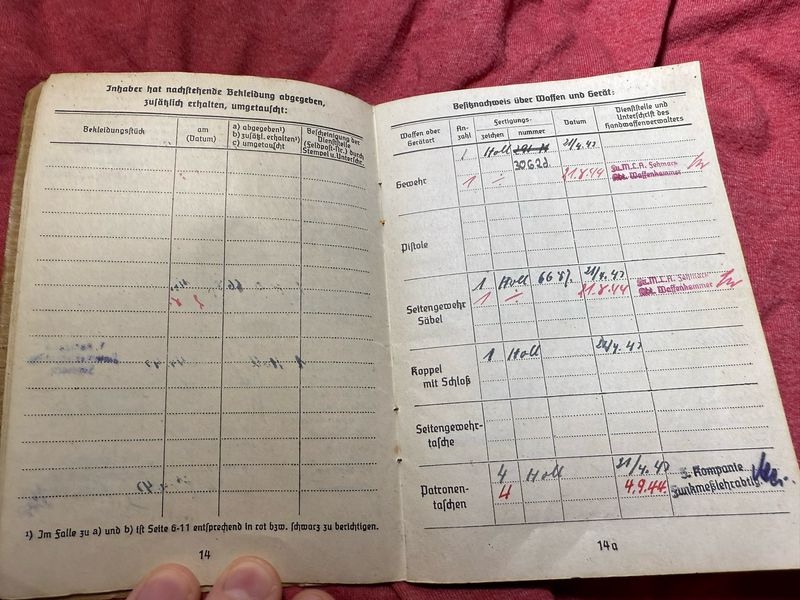 Inhaber hat nachstehende Bekleidung abgegeben,
zusätzlich erhalten, umgetauscht:
Bekleidungsstück
am
(Datum)
a) abgegeben¹)
b) zusätzl. erhalten¹)
c) umgetauscht
Bescheinigung der
Dienststelle
(Feldpost-Nr.) durch
Stempel u. Unterschr.
¹) Im Falle zu a) und b) ist Seite 6-11 entsprechend in rot bzw. schwarz zu berichtigen.
14
Besitznachweis über Waffen und Gerät:
Waffen oder
Gerätart
An-
zahl
Fertigungs-
zeichen
nummer
Datum
Dienststelle und
Unterschrift des
Handwaffenverwalters
Gewehr
1 Holl 21/4.43
3062d
1 ÷ 21.8.44
Abt. Waffenkammer
Pistole
Seitengewehr
Säbel
1 Holl 21/4.43
1 ÷ 21.8.44
Abt. Waffenkammer
Koppel
mit Schloß
1 Holl 21/4.43
Seitengewehr-
tasche
Patronen-
taschen
4 Holl 21/4.43
4 4.9.44
3. Kompanie
Funkmeßlehrabtlg.
14a